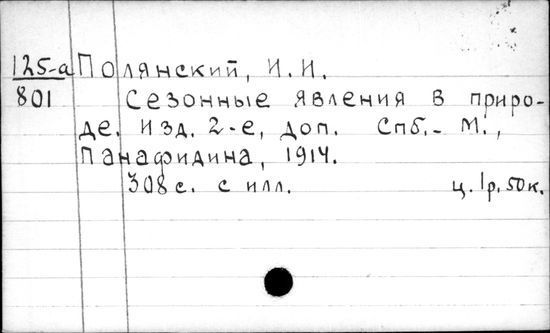 125-а Полянский, И. И.
801 Сезонные явления в приро-
де. Изд. 2-е, доп. Спб.- М.,
Панафидина, 1914.
308 с. с илл. ц. 1р. 50к.